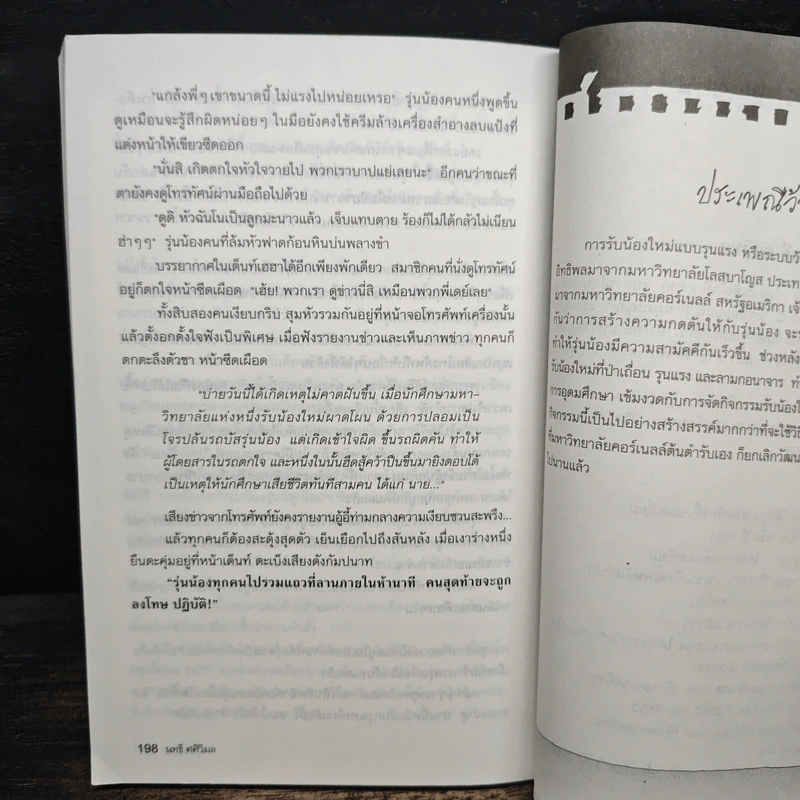 "แกล้งพี่ๆ เขาขนาดนี้ ไม่แรงไปหน่อยเหรอ" รุ่นน้องคนหนึ่งพูดขึ้น
ดูเหมือนจะรู้สึกผิดหน่อยๆ ในมือยังคงใช้ครีมล้างเครื่องสำอางลบแป้งที่
แต่งหน้าให้เขียวซีดออก
"นั่นสิ เกิดตกใจหัวใจวายไป พวกเราบาปแย่เลยนะ" อีกคนว่าขณะที่
ตายังคงดูโทรทัศน์ผ่านมือถือไปด้วย
"ดูดิ หัวฉันโนเป็นลูกมะนาวแล้ว เจ็บแทบตาย ร้องก็ไม่ได้กลัวไม่เนียน
ฮ่าๆๆ" รุ่นน้องคนที่ล้มหัวฟาดก้อนหินบ่นพลางขำ
บรรยากาศในเต็นท์เฮฮาได้อีกเพียงพักเดียว สมาชิกคนที่นั่งดูโทรทัศน์
อยู่ก็ตกใจหน้าซีดเผือด "เฮ้ย! พวกเรา ดูข่าวนี่สิ เหมือนพวกพี่เดย์เลย"
ทั้งสิบสองคนเงียบกริบ สุมหัวรวมกันอยู่ที่หน้าจอโทรศัพท์เครื่องนั้น
แล้วตั้งอกตั้งใจฟังเป็นพิเศษ เมื่อฟังรายงานข่าวและเห็นภาพข่าว ทุกคนก็
ตกตะลึงตัวชา หน้าซีดเผือด
"บ่ายวันนี้ได้เกิดเหตุไม่คาดฝันขึ้น เมื่อนักศึกษามหา-
วิทยาลัยแห่งหนึ่งรับน้องใหม่ผาดโผน ด้วยการปลอมเป็น
โจรปล้นรถบัสรุ่นน้อง แต่เกิดเข้าใจผิด ขึ้นรถผิดคัน ทำให้
ผู้โดยสารในรถตกใจ และหนึ่งในนั้นฮึดสู้คว้าปืนขึ้นมายิงตอบโต้
เป็นเหตุให้นักศึกษาเสียชีวิตทันทีสามคน ได้แก่ นาย..."
เสียงข่าวจากโทรศัพท์ยังคงรายงานอู้อี้ท่ามกลางความเงียบชวนสะพรึง...
แล้วทุกคนก็ต้องสะดุ้งสุดตัว เย็นเยือกไปถึงสันหลัง เมื่อเงาร่างหนึ่ง
ยืนตะคุ่มอยู่ที่หน้าเต็นท์ ตะเบ็งเสียงดังกัมปนาท
"รุ่นน้องทุกคนไปรวมแถวที่ลานภายในห้านาที คนสุดท้ายจะถูก
ลงโทษ ปฏิบัติ!"
198 นทธี ศศิวิมล
ประเพณีว้า
การรับน้องใหม่แบบรุนแรง หรือระบบว้
อิทธิพลมาจากมหาวิทยาลัยโลสบาโญส ประเท
มาจากมหาวิทยาลัยคอร์เนลล์ สหรัฐอเมริกา เจ้
กันว่าการสร้างความกดดันให้กับรุ่นน้อง จะ
ทำให้รุ่นน้องมีความสามัคคีกันเร็วขึ้น ช่วงหลัง
รับน้องใหม่ที่ป่าเถื่อน รุนแรง และลามกอนาจาร ทำ
การอุดมศึกษา เข้มงวดกับการจัดกิจกรรมรับน้องให
กิจกรรมนี้เป็นไปอย่างสร้างสรรค์มากกว่าที่จะใช้วิธี
ที่มหาวิทยาลัยคอร์เนลล์ต้นตำรับเอง ก็ยกเลิกวัฒน
ไปนานแล้ว